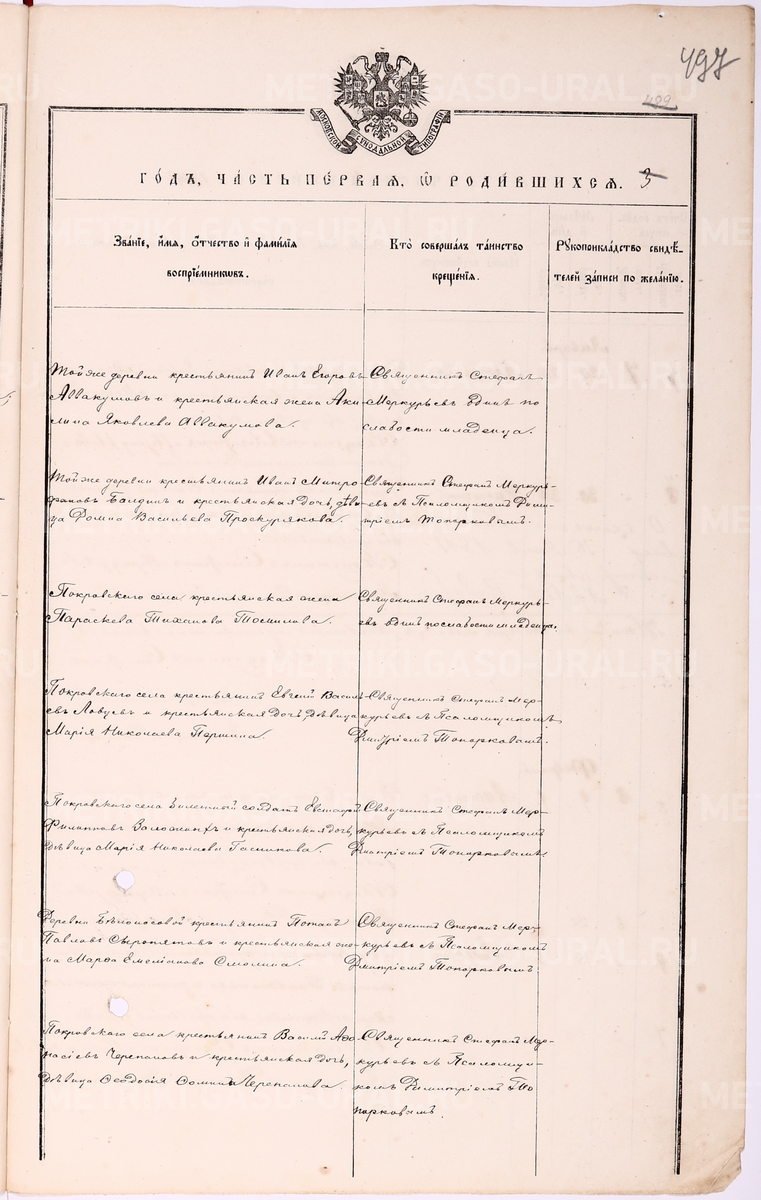 497
499
МОСКОВСКОЙ СѴНОДАЛЬНОЙ ТИПОГРАФІИ
ГО́ДЪ, ЧА́СТЬ ПЕ́РВАЯ, Ѽ РОДИ́ВШИХСЯ. 3
Зва́ніе, и́мя, ѻ҆́тчество и҆ фами́лія
воспріе́мниковъ.
Кто̀ соверша́лъ та́инство
креще́нія.
Рꙋкоприкла́дство свидѣ́-
телей за́писи по жела́нію.
Той же деревни крестьянинъ Иванъ Егоровъ
Аввакумовъ и крестьянская жена Аки-
лина Яковлева Аввакумова.
Священникъ Стефанъ
Меркурьевъ одинъ по
слабости младенца.
Той же деревни крестьянинъ Иванъ Митро-
фановъ Балдинъ и крестьянская дочь, дѣви-
ца Домна Васильева Проскурякова.
Священникъ Стефанъ Меркурь-
евъ съ Псаломщикомъ Дими-
тріемъ Топорковымъ.
Покровскаго села крестьянская жена
Параскева Тиханова Томилова.
Священникъ Стефанъ Меркурь-
евъ одинъ по слабости младенца.
Покровскаго села крестьянинъ Евгеній Василь-
евъ и крестьянская дочь, дѣвица
Марія Николаева Першина.
Священникъ Стефанъ Мер-
курьевъ съ Псаломщикомъ
Димитріемъ Топорковымъ.
Покровскаго села билетный солдатъ Евстафій
Филипповъ и крестьянская дочь,
дѣвица Марія Николаева
Священникъ Стефанъ Мер-
курьевъ съ Псаломщикомъ
Димитріемъ Топорковымъ.
Деревни Бѣлоносовой крестьянинъ Потапъ
Павловъ Сыропятовъ и крестьянская же-
на Марѳа Емеліанова Смолина.
Священникъ Стефанъ Мер-
курьевъ съ Псаломщикомъ
Димитріемъ Топорковымъ.
Покровскаго села крестьянинъ Василій Аѳа-
насіевъ Черепановъ и крестьянская дочь,
дѣвица Ѳеодосія Ѳомина Черепанова.
Священникъ Стефанъ Мер-
курьевъ съ Псаломщи-
комъ Димитріемъ То-
порковымъ.
METRIKI.GASO-URAL.RU